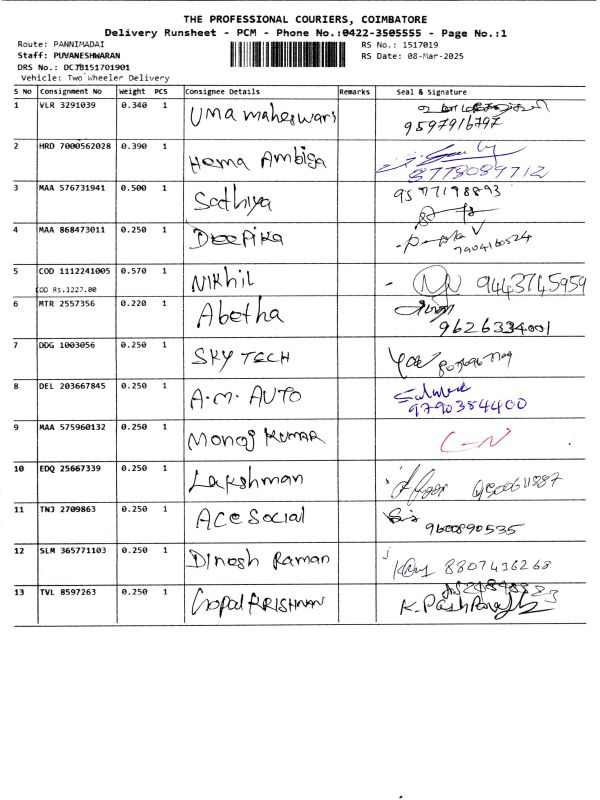 THE PROFESSIONAL COURIERS, COIMBATORE
Delivery Runsheet - PCM - Phone No.:0422-3505555 - Page No.:1
Route: PANNIMADAI
RS No.: 1517019
Staff: PUVANESHWARAN
RS Date: 08-Mar-2025
DRS No.: DCJB151701901
Vehicle: Two Wheeler Delivery
S No Consignment No Weight PCS Consignee Details Remarks Seal & Signature
1 VLR 3291039 0.340 1 Uma maheswari
9597916797
2 HRD 7000562028 0.390 1 Hema Ambiga
8778089712
3 MAA 576731941 0.500 1 Sathiya 9577198893
4 MAA 868473011 0.250 1 DEEPIKA
7904160524
5 COD 1112241005 0.570 1 Nikhil 9443745959
COD Rs.1227.00
6 MTR 2557356 0.220 1 Abetha
9626334001
7 DDG 1003056 0.250 1 SKY TECH
8 DEL 203667845 0.250 1 A.M. AUTO
9790384400
9 MAA 575960132 0.250 1 Monoj KUMAR
10 EDQ 25667339 0.250 1 Lakshman
11 TNJ 2709863 0.250 1 ACE Social
9600890535
12 SLM 365771103 0.250 1 Dinesh Raman 8807436268
13 TVL 8597263 0.250 1 Gopal KRISHNAN